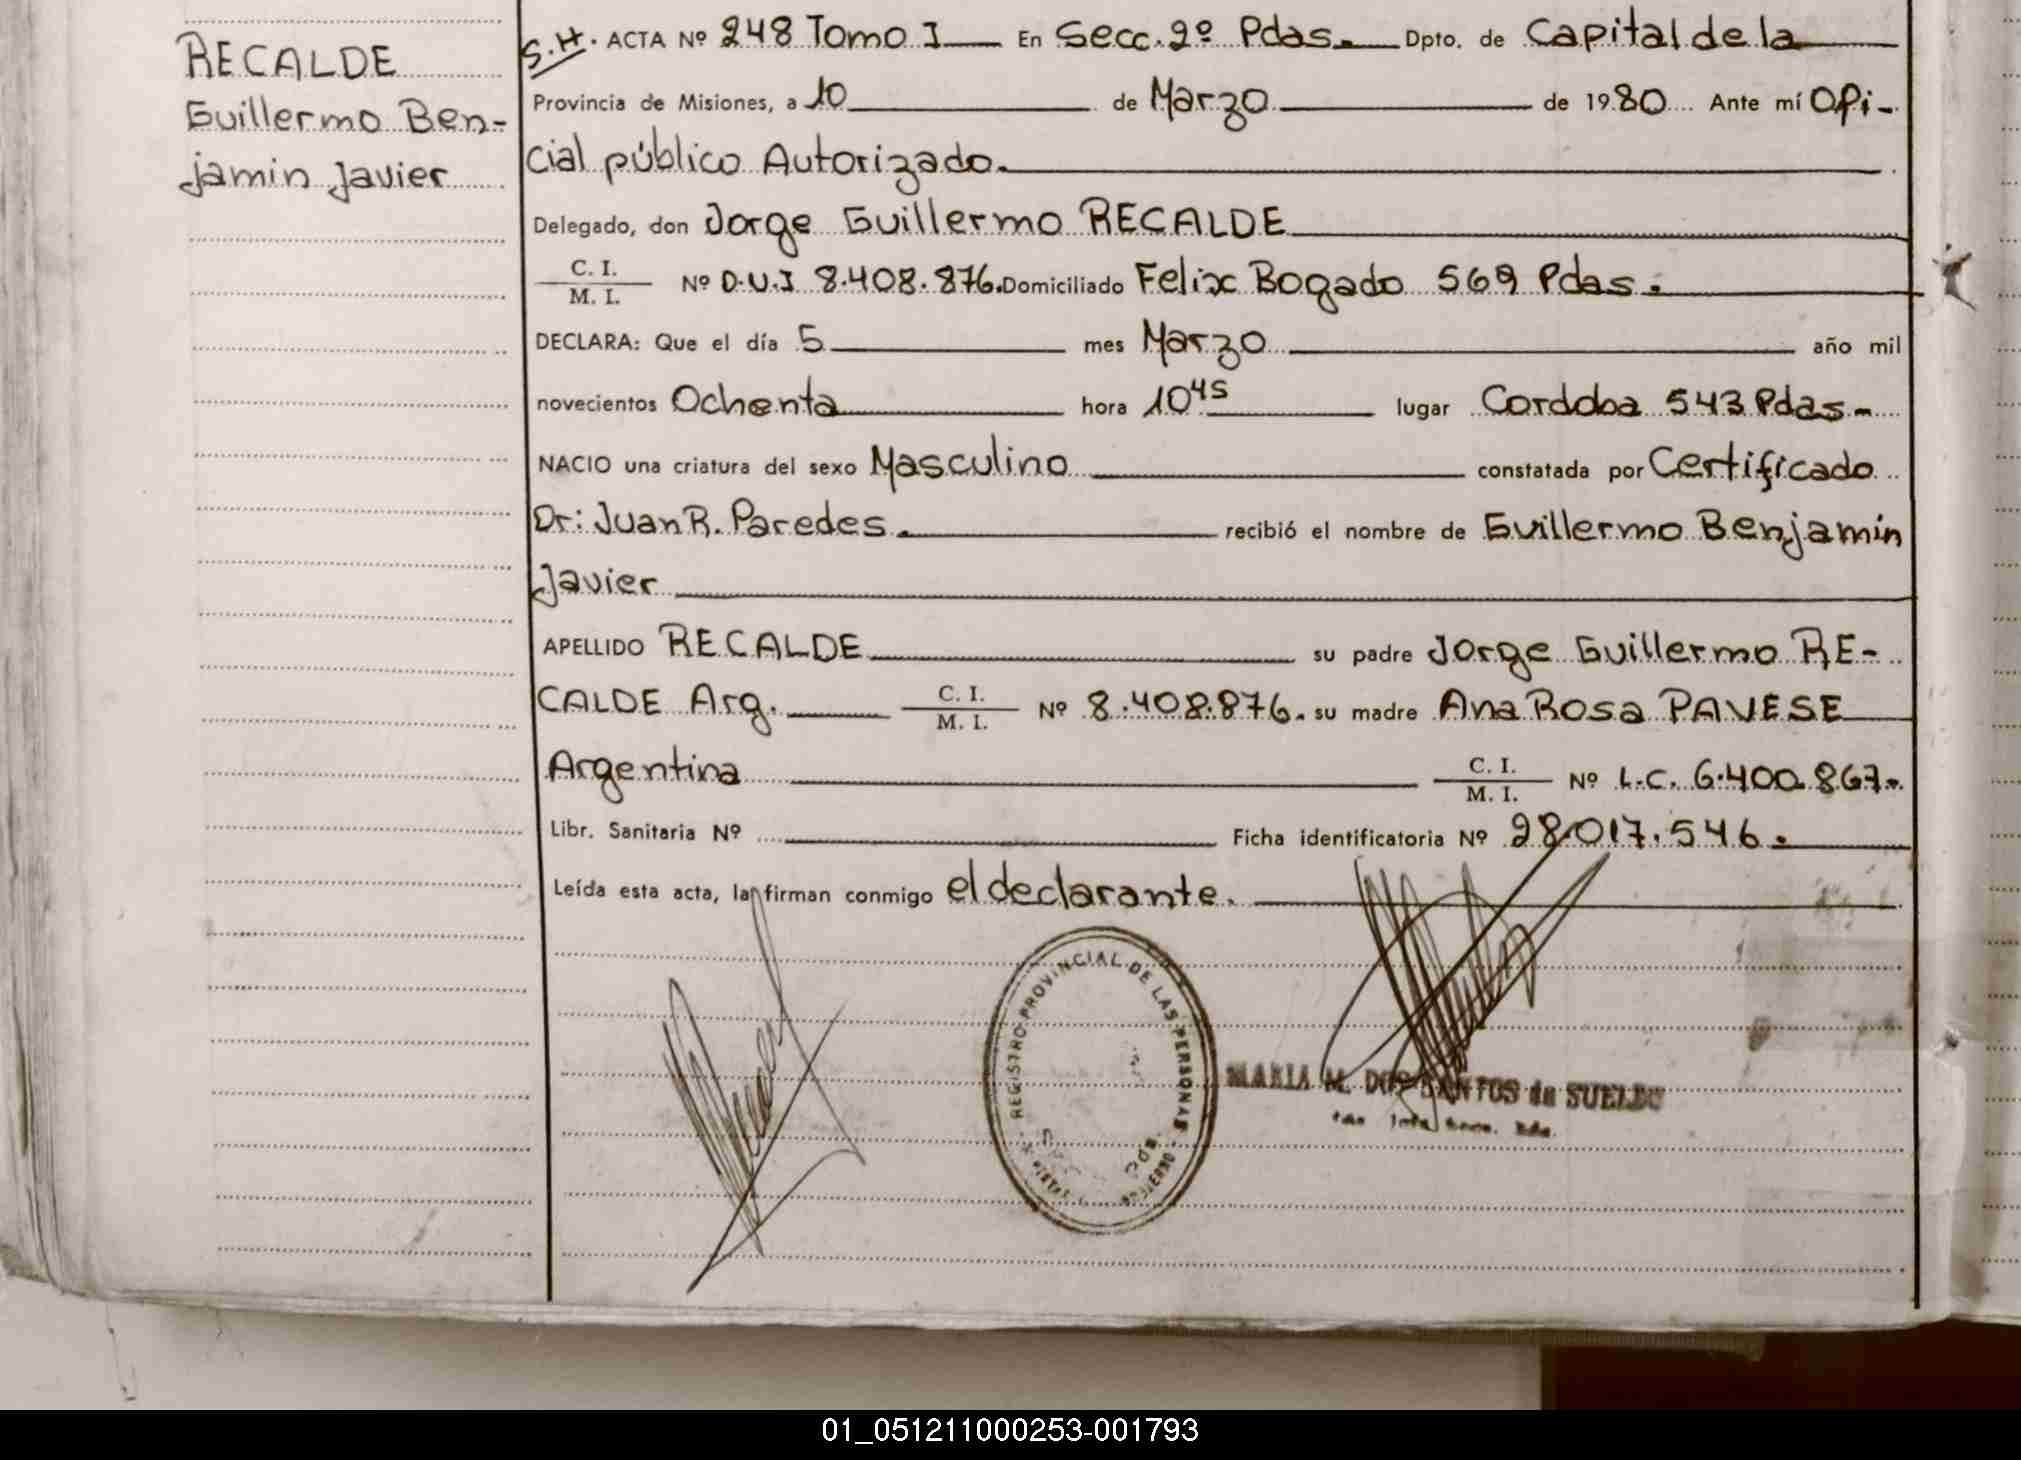 RECALDE
Guillermo Ben-
jamin Javier
S.H. ACTA Nº 248 Tomo I En Secc. 2º Pdas. Dpto. de Capital de la
Provincia de Misiones, a 10 de Marzo de 1980 Ante mí Ofi-
cial público Autorizado.
Delegado, don Jorge Guillermo RECALDE
C. I.
M. I. Nº D.U.I 8.408.876. Domiciliado Felix Bogado 569 Pdas.
DECLARA: Que el día 5 mes Marzo año mil
novecientos Ochenta hora 10 45 lugar Cordoba 543 Pdas-
NACIO una criatura del sexo Masculino constatada por Certificado
Dr: Juan R. Paredes. recibió el nombre de Guillermo Benjamin
Javier
APELLIDO RECALDE su padre Jorge Guillermo RE-
CALDE Arg. C. I. M. I. Nº 8.408.876. su madre Ana Rosa PAVESE
Argentina C. I. M. I. Nº L.C. 6.400.867.
Libr. Sanitaria Nº Ficha identificatoria Nº 28.017.546.
Leída esta acta, la firman conmigo el declarante.
REGISTRO PROVINCIAL DE LAS PERSONAS
MARIA M. DOS SANTOS de SUELDO
01_051211000253-001793